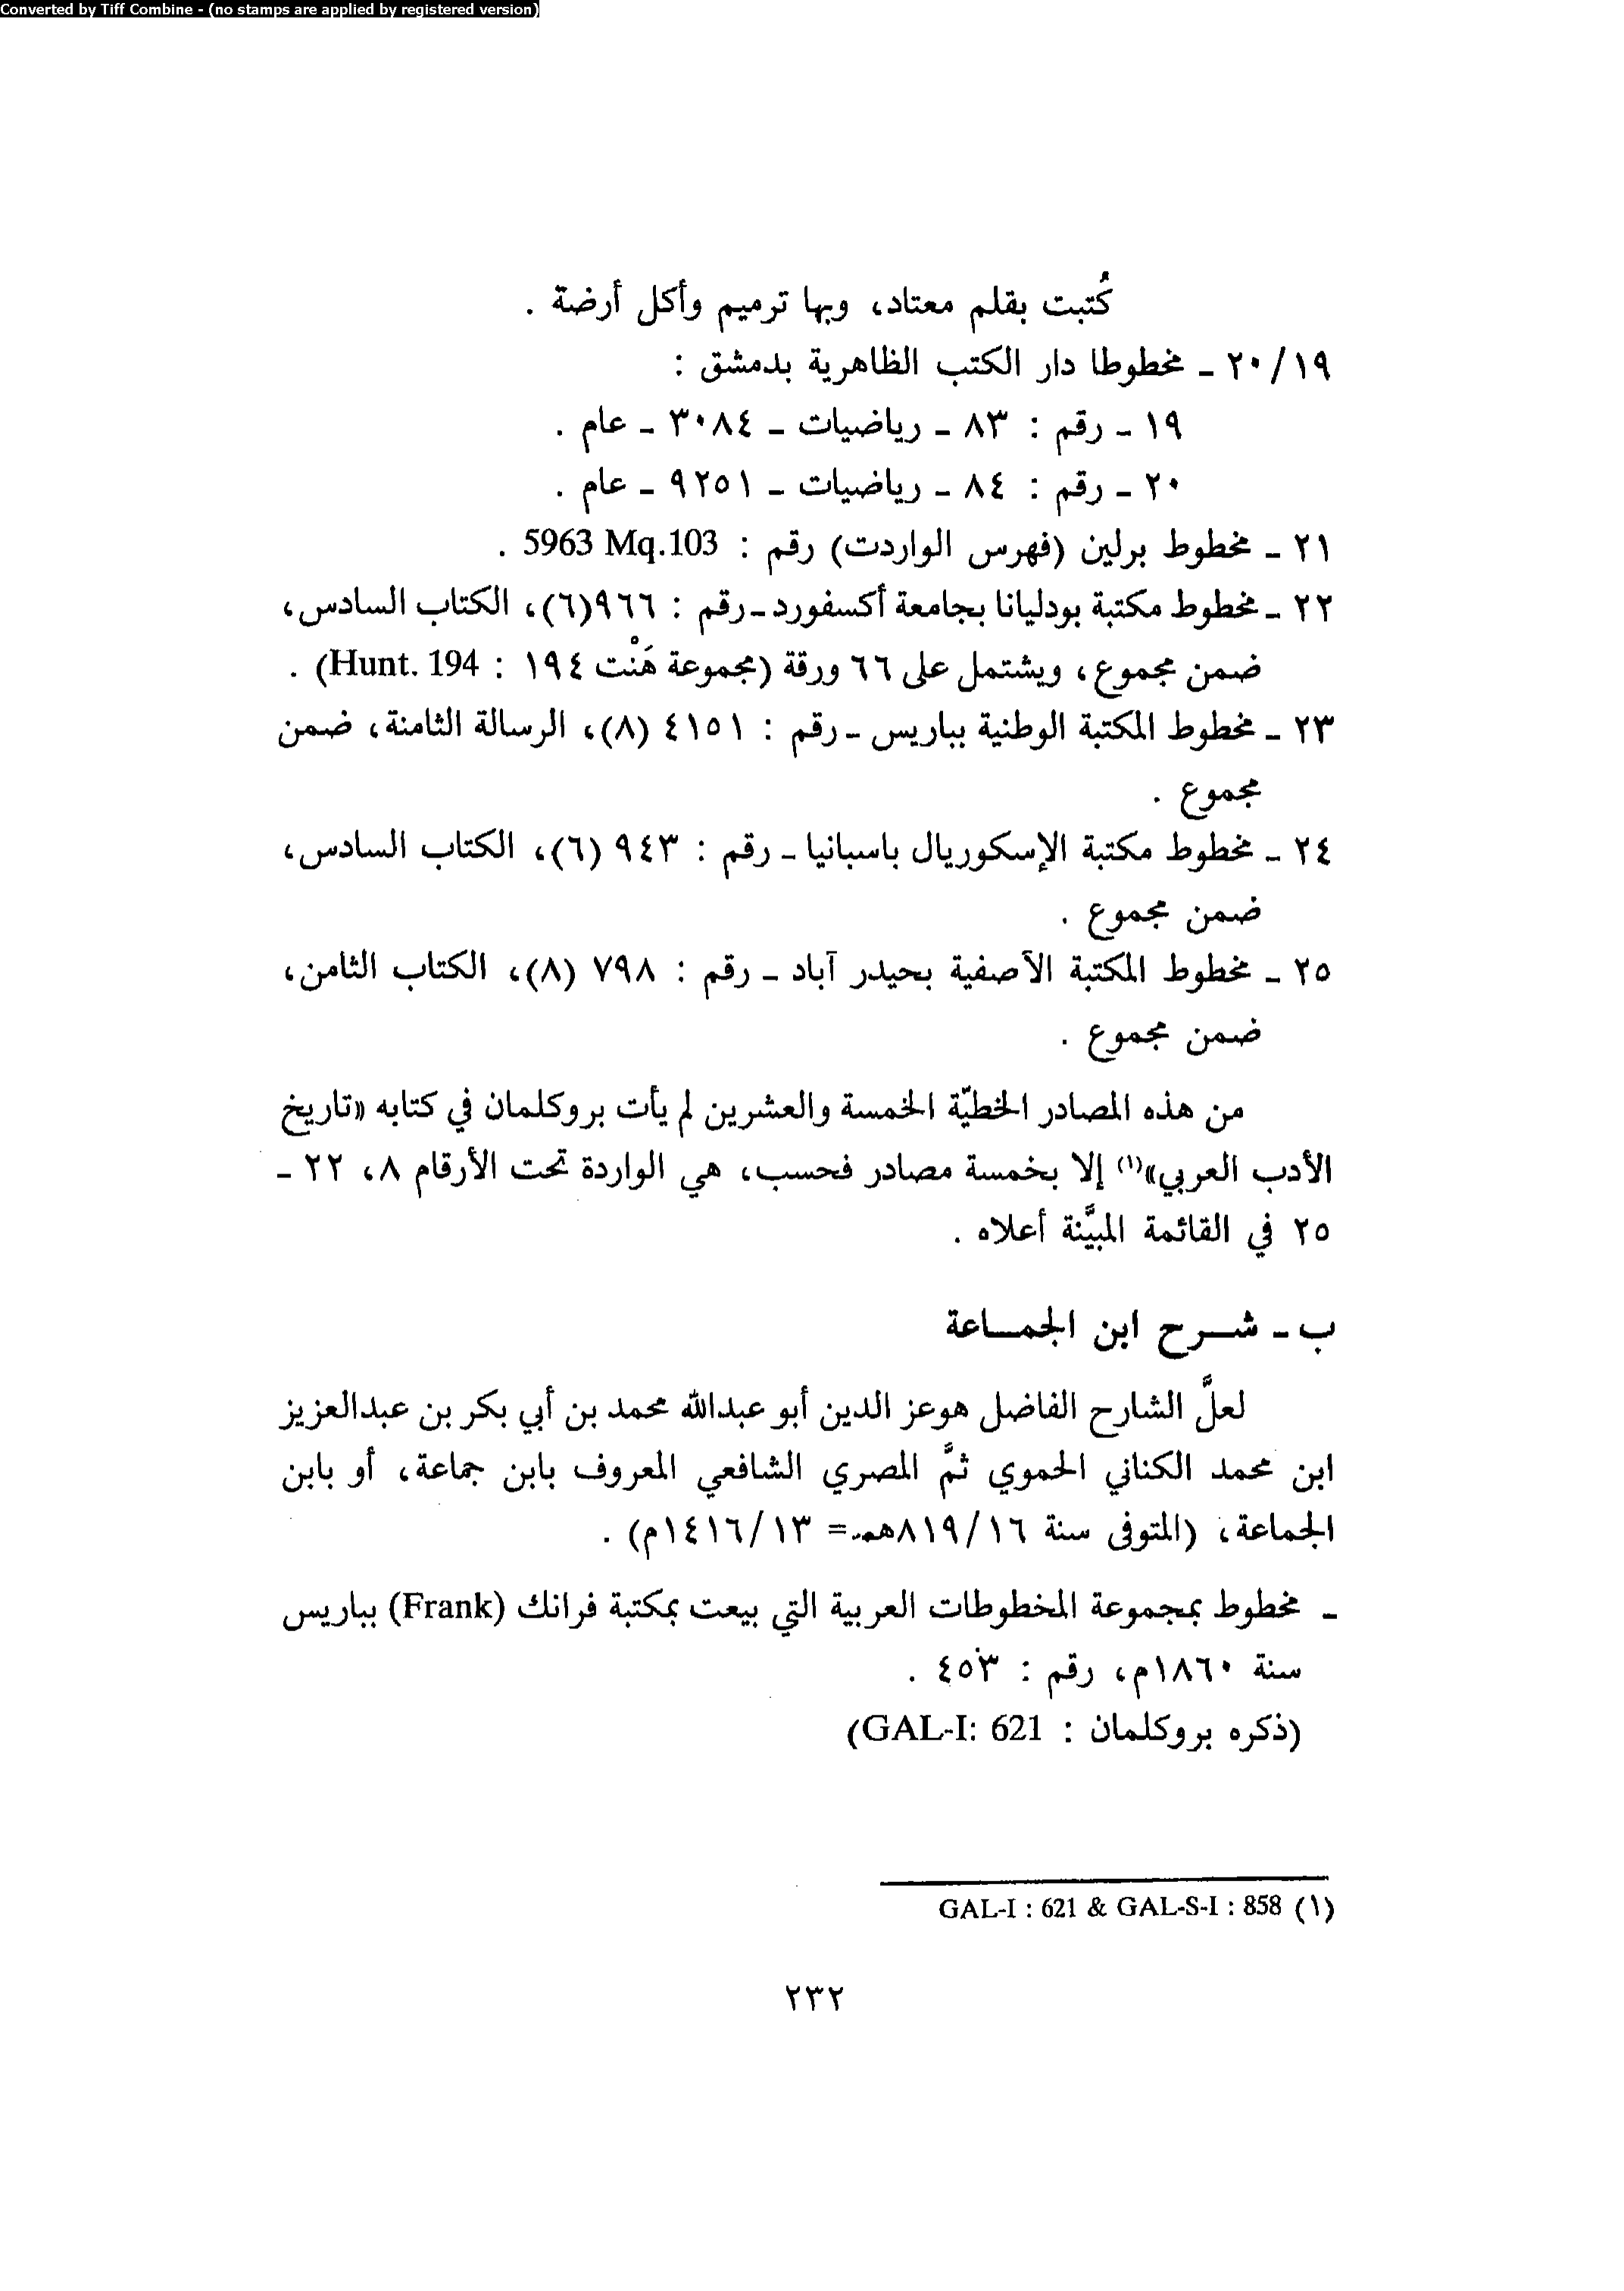 Converted by Tiff Combine - (no stamps are applied by registered version)
كُتبت بقلم معتاد، وبها ترميم وأكل أرضة .
٢٠/١٩ - مخطوطا دار الكتب الظاهرية بدمشق :
١٩ - رقم : ٨٣ - رياضيات - ٣٠٨٤ - عام .
٢٠ - رقم : ٨٤ - رياضيات - ٩٢٥١ - عام .
٢١ - مخطوط برلين (فهرس الواردت) رقم : 5963 Mq.103 .
٢٢ - مخطوط مكتبة بودليانا بجامعة أكسفورد - رقم : ٩٦٦(٦)، الكتاب السادس،
ضمن مجموع، ويشتمل على ٦٦ ورقة (مجموعة هَنْت ١٩٤ : Hunt. 194) .
٢٣ - مخطوط المكتبة الوطنية بباريس - رقم : ٤١٥١ (٨)، الرسالة الثامنة، ضمن
مجموع .
٢٤ - مخطوط مكتبة الإسكوريال باسبانيا - رقم : ٩٤٣ (٦)، الكتاب السادس،
ضمن مجموع .
٢٥ - مخطوط المكتبة الآصفية بحيدر آباد - رقم : ٧٩٨ (٨)، الكتاب الثامن،
ضمن مجموع .
من هذه المصادر الخطيّة الخمسة والعشرين لم يأت بروكلمان في كتابه «تاريخ
الأدب العربي»(١) إلا بخمسة مصادر فحسب، هي الواردة تحت الأرقام ٨، ٢٢ -
٢٥ في القائمة المبيَّنة أعلاه .
ب - شـرح ابن الجمـاعة
لعلَّ الشارح الفاضل هوعز الدين أبو عبدالله محمد بن أبي بكر بن عبدالعزيز
ابن محمد الكناني الحموي ثمَّ المصري الشافعي المعروف بابن جماعة، أو بابن
الجماعة، (المتوفى سنة ٨١٩/١٦هـ = ١٤١٦/١٣م) .
- مخطوط بمجموعة المخطوطات العربية التي بيعت بمكتبة فرانك (Frank) بباريس
سنة ١٨٦٠م، رقم : ٤٥٣ .
(ذكره بروكلمان : GAL-I: 621)
(١) GAL-I : 621 & GAL-S-I : 858
٢٣٢